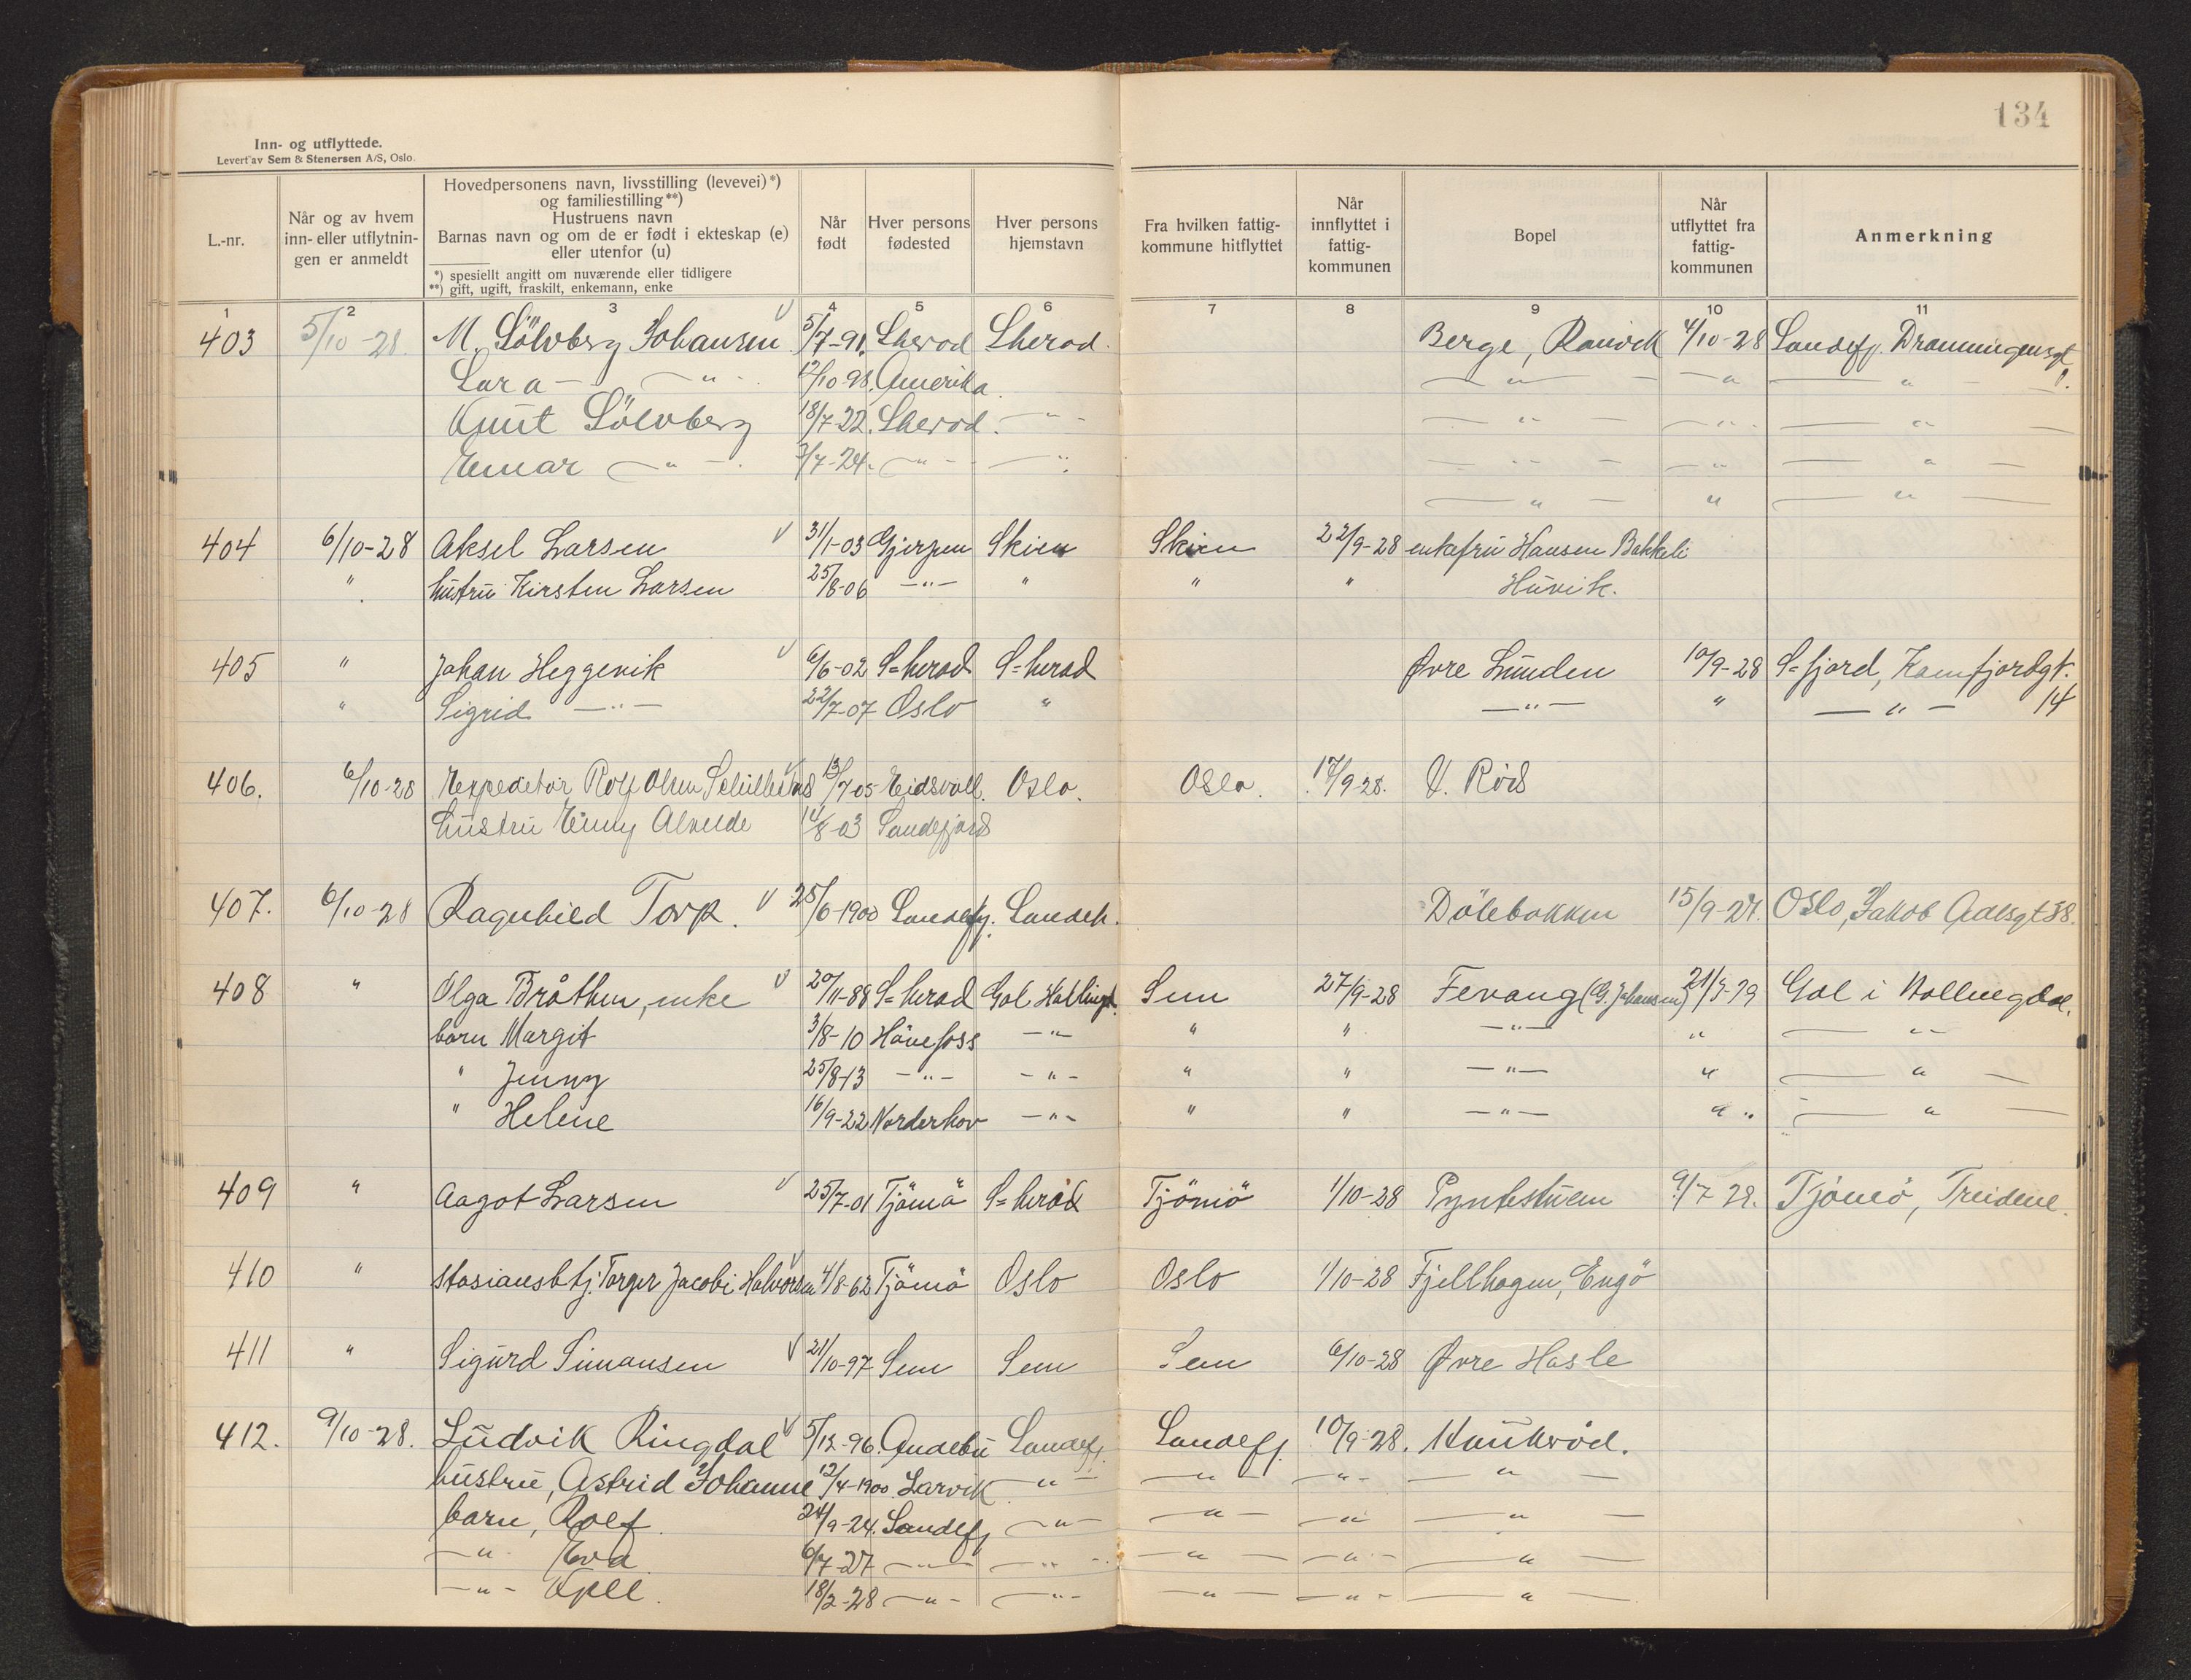 134
Inn- og utflyttede.
Levert av Sem & Stenersen A/S, Oslo.
L.-nr.
Når og av hvem inn- eller utflytnin-gen er anmeldt
Hovedpersonens navn, livsstilling (levevei)*) og familiestilling**)
Hustruens navn
Barnas navn og om de er født i ekteskap (e) eller utenfor (u)
*) spesiellt angitt om nuværende eller tidligere
**) gift, ugift, fraskilt, enkemann, enke
Når født
Hver persons fødested
Hver persons hjemstavn
Fra hvilken fattig-kommune hitflyttet
Når innflyttet i fattig-kommunen
Bopel
Når utflyttet fra fattig-kommunen
Anmerkning
1 2 3 4 5 6 7 8 9 10 11
403 5/10-28. M. Sölvberg Johansen 5/7-91. Sherod Sherod. Berge, Ranvik 4/10-28 Sandefj. Dronningensgt
Lara - " - 12/10-98. Amerika. - " - - " - " -
Knut Sölvberg 18/7-22. Sherod. - " - - " - - " - - " -
Einar - " - /7-24. - " - - " - - " - - " - - " -
- " - " - " -
404 6/10-28 Aksel Larsen 31/1-03 Gjerpen Skien Skien 22/9-28 enkefru Hansen Bakkeli
" hustru Kirsten Larsen 25/8-06 - " - " " " Huvik.
405 " Johan Heggenik 6/6-02 S=herad S=herad Øvre Lunden 10/9-28 S=fjord, Kamfjordgt.
" Sigrid - " - 22/7-07 Oslo " - " - " - " - 14
406. 6/10-28 Expeditør Rolf Olsen 13/7 05 Eidsvoll. Oslo. Oslo. 17/9-28. V. Röd
hustru Alvilde 14/8-03 Sandefjord
407. 6/10-28 Ragnhild Torp. 25/6-1900 Sandefj. Sandeh. Dölebakken 15/9-27. Oslo, Jakob Aallsgt 38.
408 " Olga Bråthen, enke 20/11-88 S=herad Gol Hallingd. Sem 27/9-28 Fevang (G. Johansen) 21/3-29 Gol i Hallingdal.
barn Margit 3/8-10 Hönefoss - " - " " - " - " - " -
" Jenny 25/8-13 - " - - " - " " - " - " - " -
" Helene 16/9-22 Norderhov - " - " " - " - " - " -
409 " Aagot Larsen 25/7-01 Tjömö S=herad Tjömö 1/10-28 Pyntestuen 9/7 29. Tjömö, Treidene.
410 " stasjonsbtj. Torger Jacobi Halvorsen 4/8-62 Tjömö Oslo Oslo 1/10-28 Fjellhagen, Engö
411 " Sigurd Simonsen 21/10-97 Sem Sem Sem 6/10-28 Øvre Hasle
412. 9/10-28. Ludvik Ringdal 5/12-96. Andebu Sandefj. Sandefj. 10/9-28. Haukeröd.
hustru, Astrid Johanne 12/4-1900. Larvik - " - - " - - " - - " -
barn, Rolf. 24/9-24. Sandefj - " - - " - - " - - " -
- " - Eva 6/7-27 - " - - " - - " - - " - - " -
- " - Kjell. 18/2-28 - " - - " - - " - - " - - " -